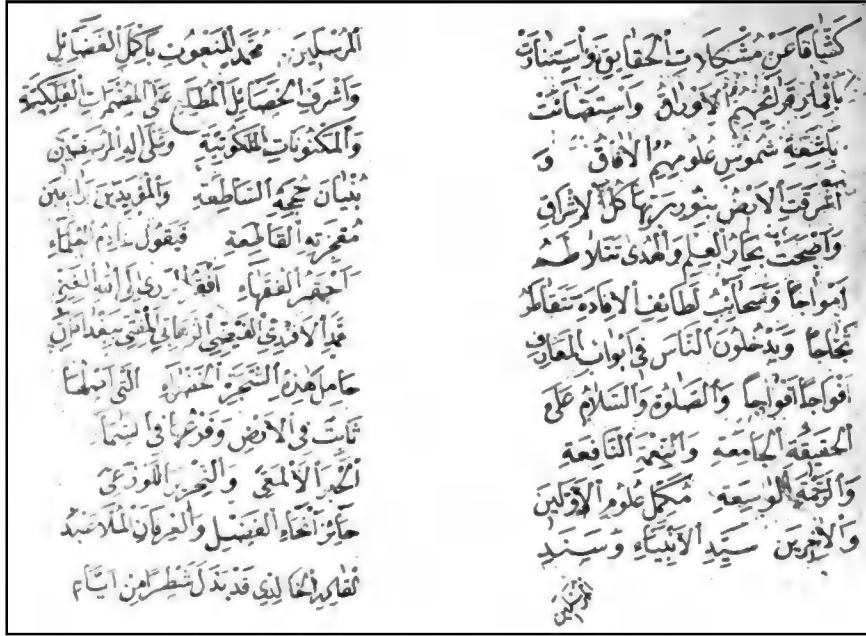 كشافا عن مشكلات الحقايق واستنارت
بأقمار قرائحهم الأوراق واستضائت
بأشعة شموس علومهم الآفاق و
أشرقت الأرض بنور ربها كل الإشراق
وأضحت بحار العلم والهدى تتلاطم
أمواجا وسحائب لطائف الإفادة تتقاطر
ثجاجا ويدخلون الناس في أبواب المعارف
أفواجا أفواجا والصلوة والسلام على
الحقيقة الجامعة والنعمة النافعة
والرحمة الواسعة مكمل علوم الأولين
والآخرين سيد الأنبياء وسند
المرسلين
المرسلين محمد المنعوت بأكمل الفضائل
وأشرف الخصائل المطلع على المضمرات الفلكية
والمكنونات الملكوتية وعلى آله المرسخين
بنيان حججه الساطعة والمؤيدين براهين
معجزته القاطعة فيقول خادم العلماء
أحقر الفقهاء أفقر الورى إلى الله الغني
محمد الأفندي الفيضي الزهاوي المفتي ببغداد إن
حامل هذه الشجرة الخضراء التي أصلها
ثابت في الأرض وفرعها في السماء
الحبر الألمعي والنحرير اللوذعي
حائز أنحاء الفضل والعرفان الملا
الخالدي قد بذل شطرا من أيام